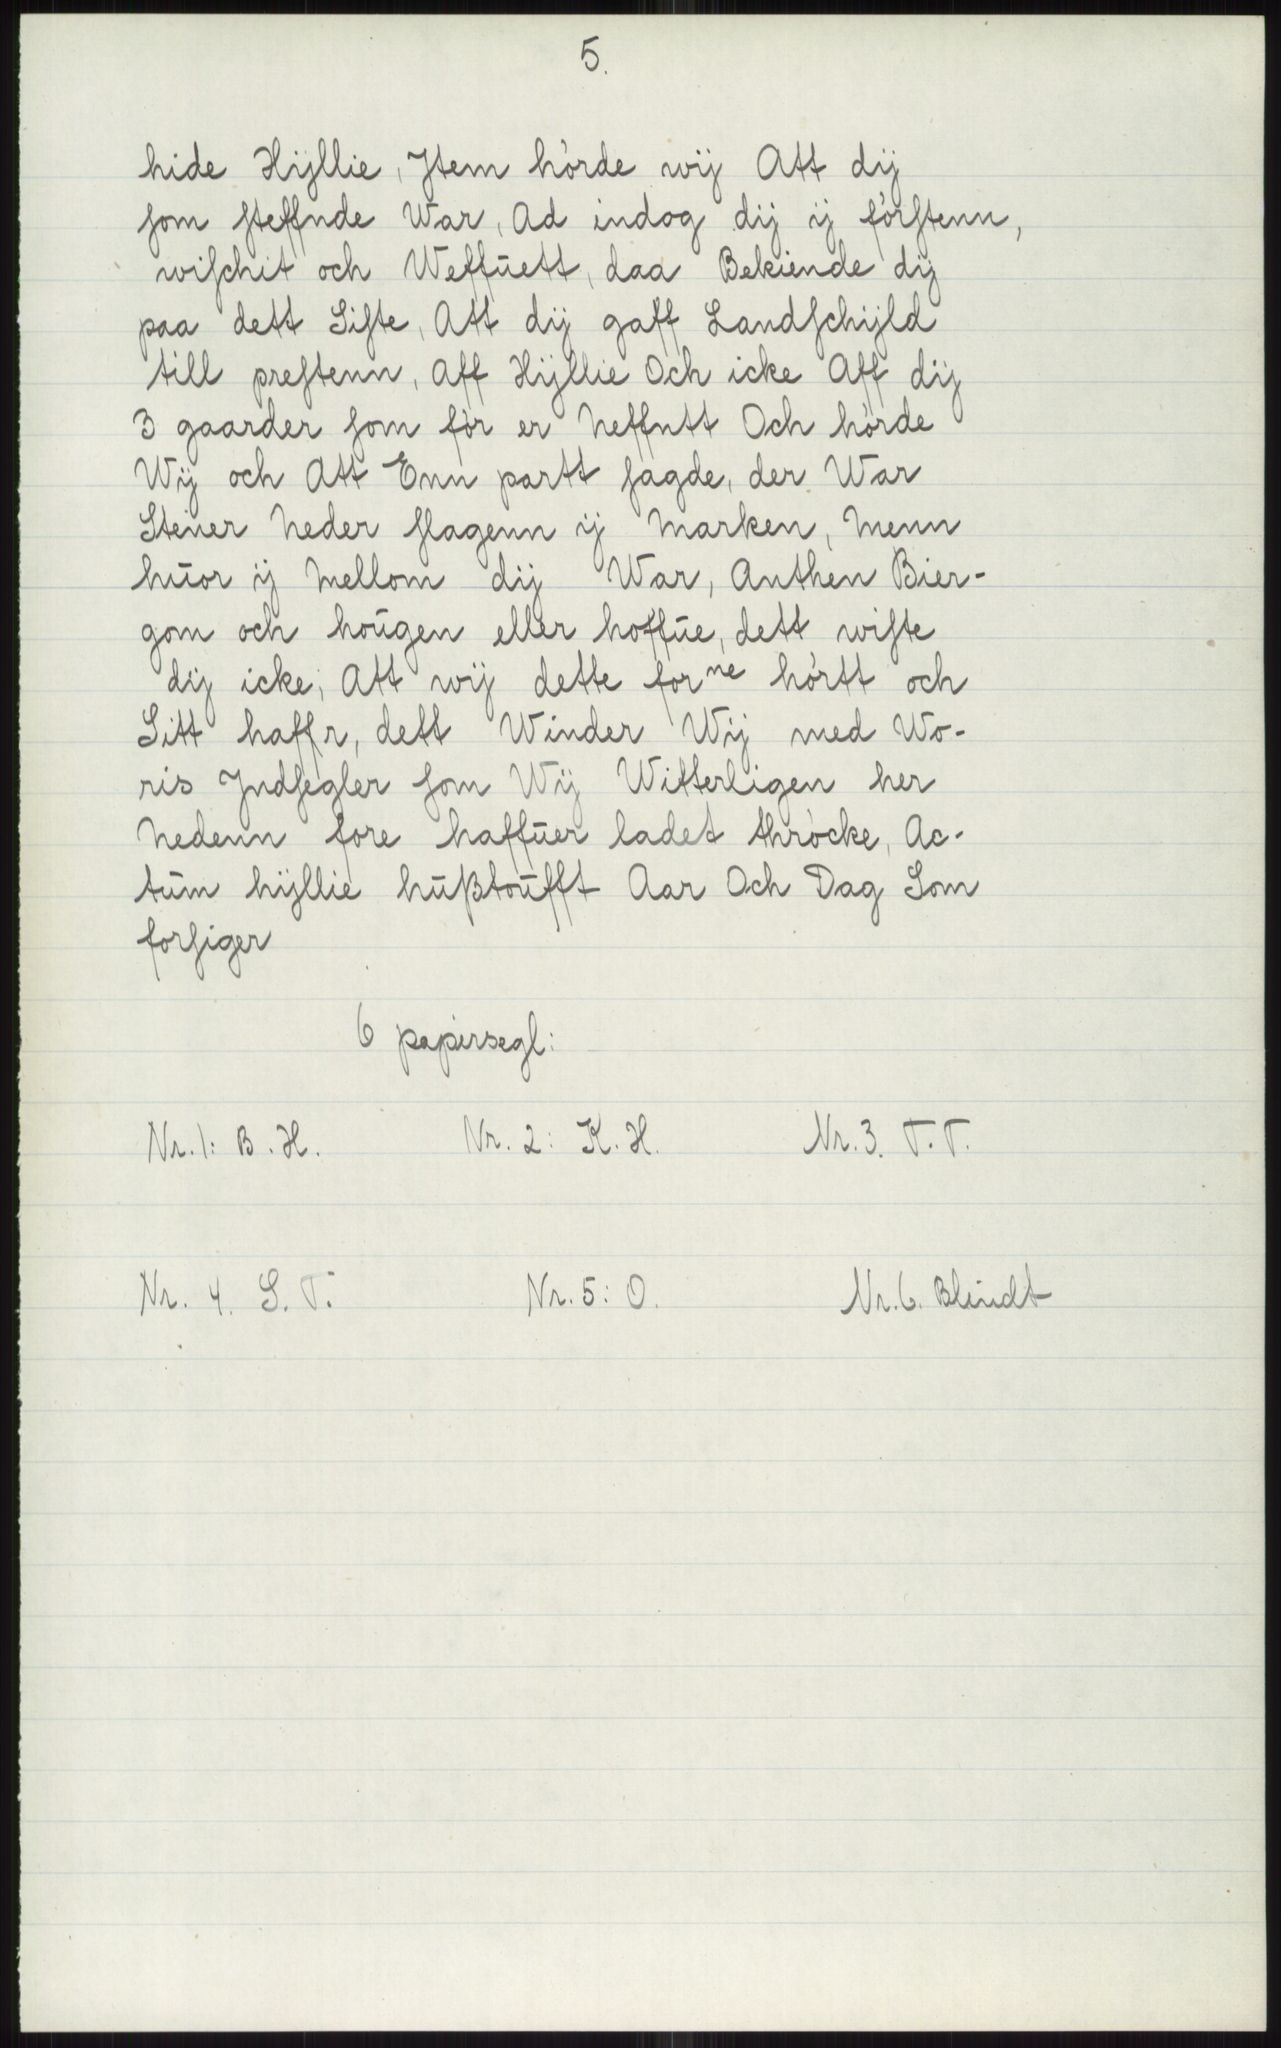 5.
hide Hÿllie, Jtem hòrde wÿ Att dÿ
som steffnde War, Ad indog dÿ ÿ fòrstenn,
wischit och Weffūett, daa Bekiende dÿ
paa dett Siste, Att dÿ gaff Landschÿld
till prestenn, Aff Hÿllie Och icke Aff dÿ
3 gaarder som fòr er Neffntt Och hòrde
Wÿ och Att Enn partt sagde, der War
Stener Neder slagenn ÿ Marken, Menn
hūor ÿ Mellom dÿ War, Anthen Bier-
gom och hoūgen eller hoffūe, dett wiste
dÿ icke, Att wÿ dette forne hòrtt och
Sitt haffr, dett Winder Wÿ med Wo-
ris Jndsegler som Wÿ Witterligen her
Nedenn fore haffūer ladet thròcke, Ac-
tūm hÿllie hūßtoūfft Aar Och Dag Som
forsiger
6 papirsegl:
Nr. 1: B. H. Nr. 2: K. H. Nr. 3. T. T.
Nr. 4. S. T. Nr. 5: O. Nr. 6. Blindt